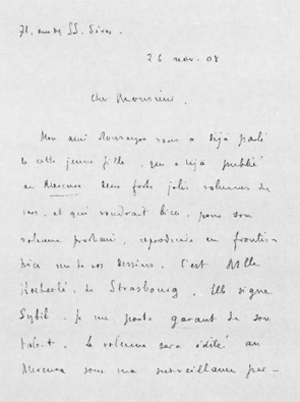 71, rue des SS. Pères.
26 nov. 08
Cher Monsieur,
Mon ami Rouveyre vous a déjà parlé
de cette jeune fille, qui a déjà publié
au Mercure deux forts jolis volumes de
vers, et qui voudrait bien, pour son
volume prochain, reproduire en frontis-
pice un de vos dessins. C'est Mlle
de Strasbourg. Elle signe
Sybil. Je me porte garant de son
talent. Le volume sera édité au
Mercure sous ma surveillance per-